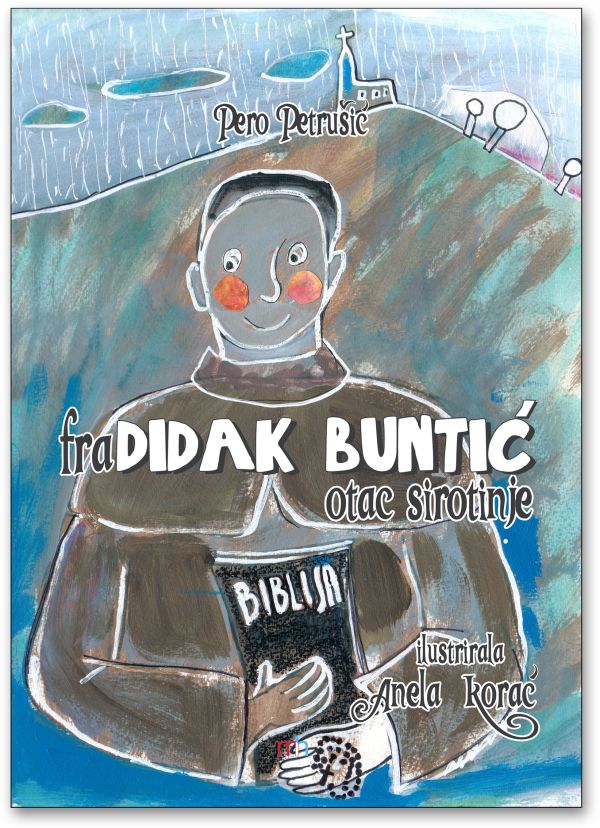 Pero Petrušić
fra DIDAK BUNTIĆ
otac sirotinje
BIBLIJA
ilustrirala
Anela Korać
mh